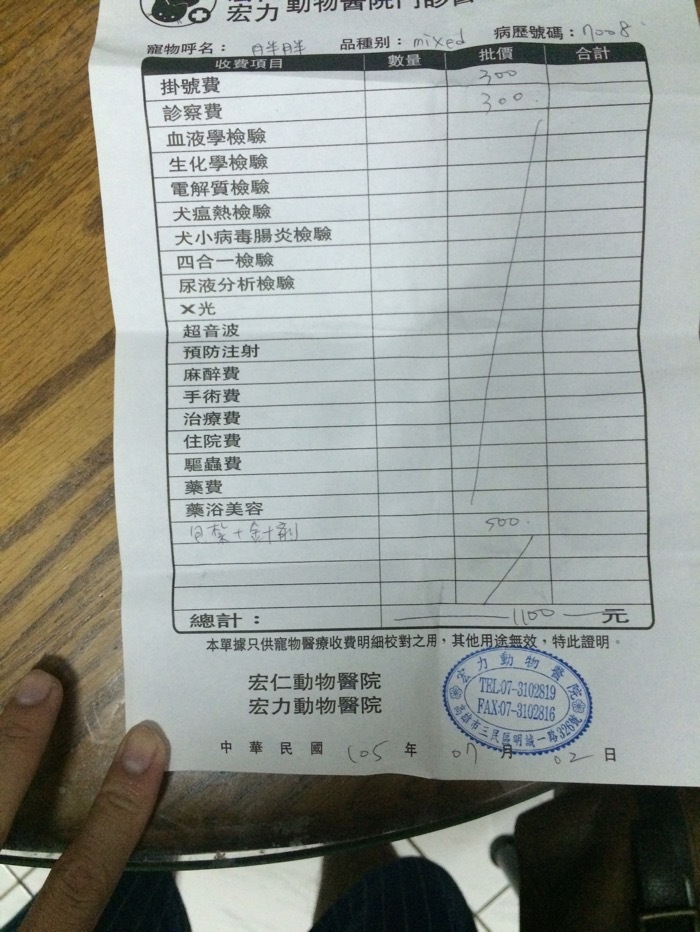 宏力動物醫院門診
寵物呼名： 胖胖 品種別： mixed 病歷號碼： 7008
收費項目 數量 批價 合計
掛號費 300
診察費 300.
血液學檢驗
生化學檢驗
電解質檢驗
犬瘟熱檢驗
犬小病毒腸炎檢驗
四合一檢驗
尿液分析檢驗
X光
超音波
預防注射
麻醉費
手術費
治療費
住院費
驅蟲費
藥費
藥浴美容
+針劑 500.
總計： 1100 元
本單據只供寵物醫療收費明細校對之用，其他用途無效，特此證明。
宏仁動物醫院
宏力動物醫院
宏力動物醫院
TEL:07-3102819
FAX:07-3102816
高雄市三民區明誠一路326號
中華民國 105 年 07 月 02 日